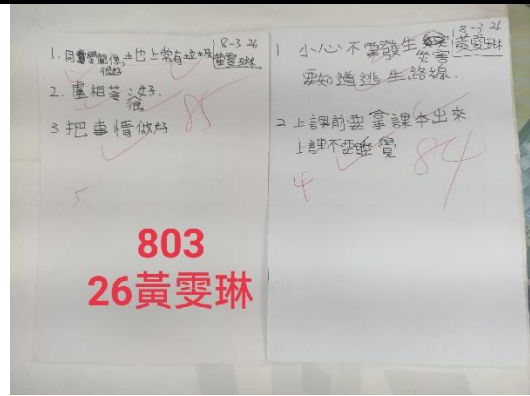 8-3 26
黃雯琳
1. 同學關係, 土也上常有垃圾
很好
2. 盧相苓 : 好.
很
3 把事情做好
85
5
803
26黃雯琳
8-3 26
黃雯琳
1 小心不要發生
災害
要知道逃生路線.
2 上課前要拿課本出來
上課不要睡覺
84
4